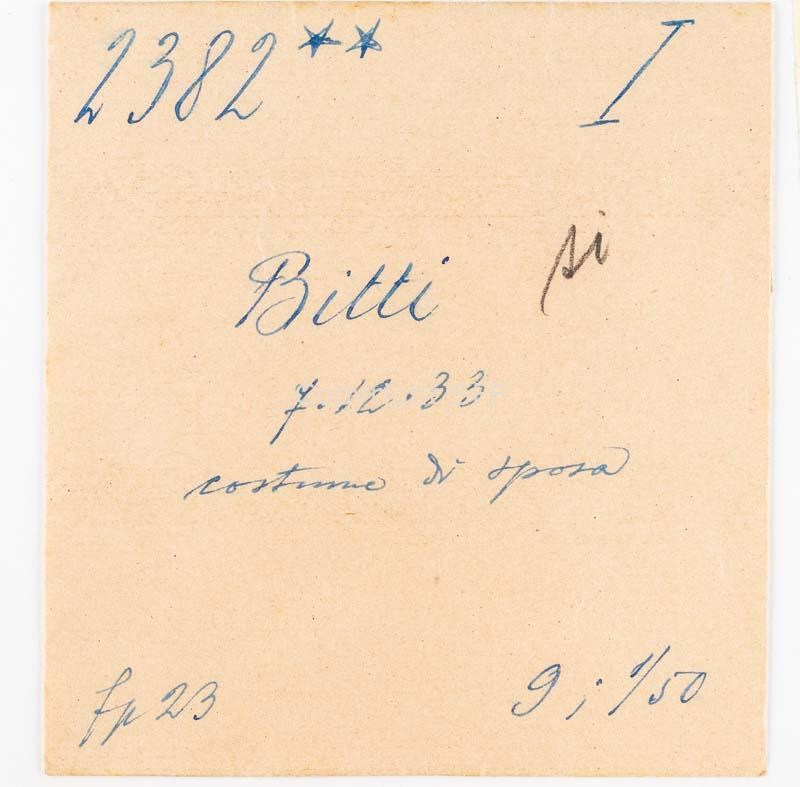 2382** I
si
Bitti
7.12.33
costume di sposa
fp 23 9; 1/50